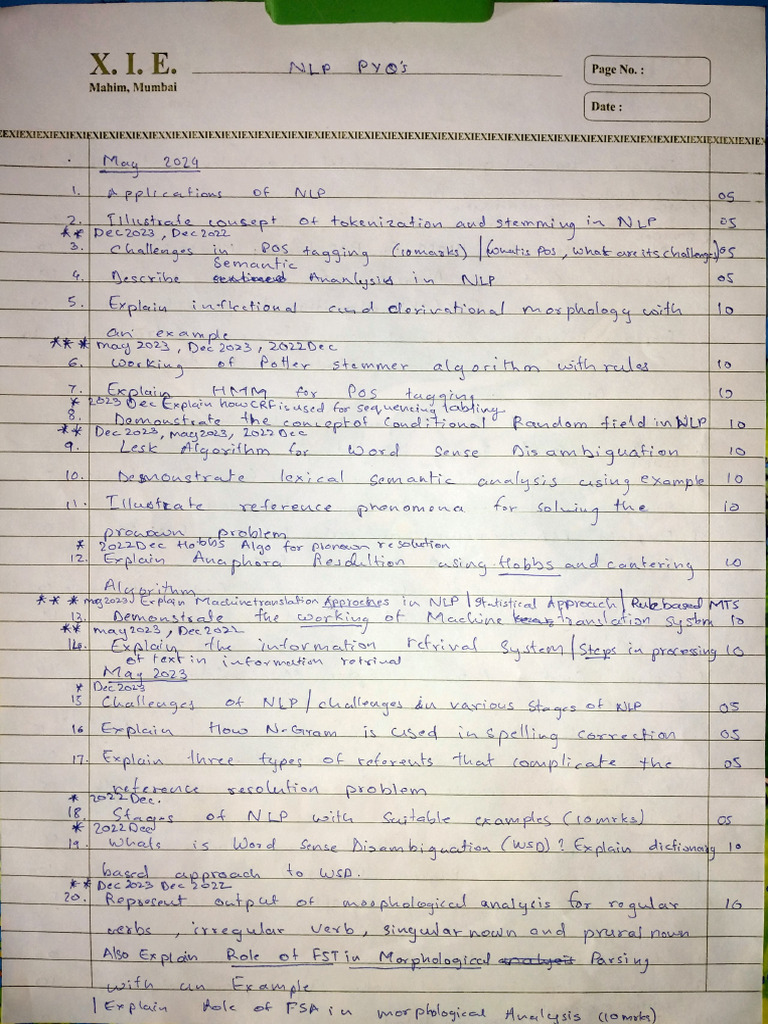 X. I. E.
Mahim, Mumbai
NLP PYQ's
Page No. :
Date :
EXIEXIEXIEXIEXIEXIEXIEXIEXXIEXIEXIEXIEXIEXIEXIEXIEXIEXIEXIEXIEXIEXIEXIEXIEXIEXIEXIEXIEXIEXIEXIEXIEXI
May 2024
1. Applications of NLP 05
2. Illustrate consept of tokenization and stemming in NLP 05
** Dec2023, Dec2022
3. Challenges in POS tagging (10marks) / (What is Pos, What are its challenges) 05
Semantic
4. Describe Ananlysis in NLP 05
5. Explain inflectional and derivational morphology with 10
an example
*** may 2023, Dec 2023, 2022Dec
6. Working of Potler stemmer algorithm with rules 10
7. Explain HMM for POS tagging 10
* 2023 Dec Explain how CRF is used for sequencing labling
8. Demonstrate the concept of Conditional Random field in NLP 10
** Dec 2023, may2023, 2022Dec
9. Lesk Algorithm for Word Sense Disambiguation 10
10. Demonstrate lexical semantic analysis using example 10
11. Illustrate reference phenomena for solving the 10
pronown problem
* 2022Dec Hobbs Algo for pronown resolution
12. Explain Anaphora Resolution using Hobbs and cantering 10
Algorithm
*** may2023, Explain Machinetranslation Approches in NLP / Statistical Approach / Rule based MTS
13. Demonstrate the working of Machine translation System 10
** may2023, Dec2022
14. Explain the information retrival System / Steps in processing 10
of text in information retrival
May 2023
* Dec2023
15 Challenges of NLP / challenges in various stages of NLP 05
16 Explain How N-Gram is used in spelling correction 05
17. Explain three types of referents that complicate the 05
reference resolution problem
* 2022 Dec.
18. Stages of NLP with Suitable examples (10mrks) 05
* 2022Dec
19. Whats is Word Sense Disambiguation (WSD)? Explain dictionary 10
based approach to WSD.
** Dec2023 Dec 2022
20. Represent output of morphological analysis for regular 10
verbs, irregular verb, singular nown and prural nown
Also Explain Role of FST in Morphological Parsing
with an Example
/ Explain Role of FSA in morphological Analysis (10mrks)